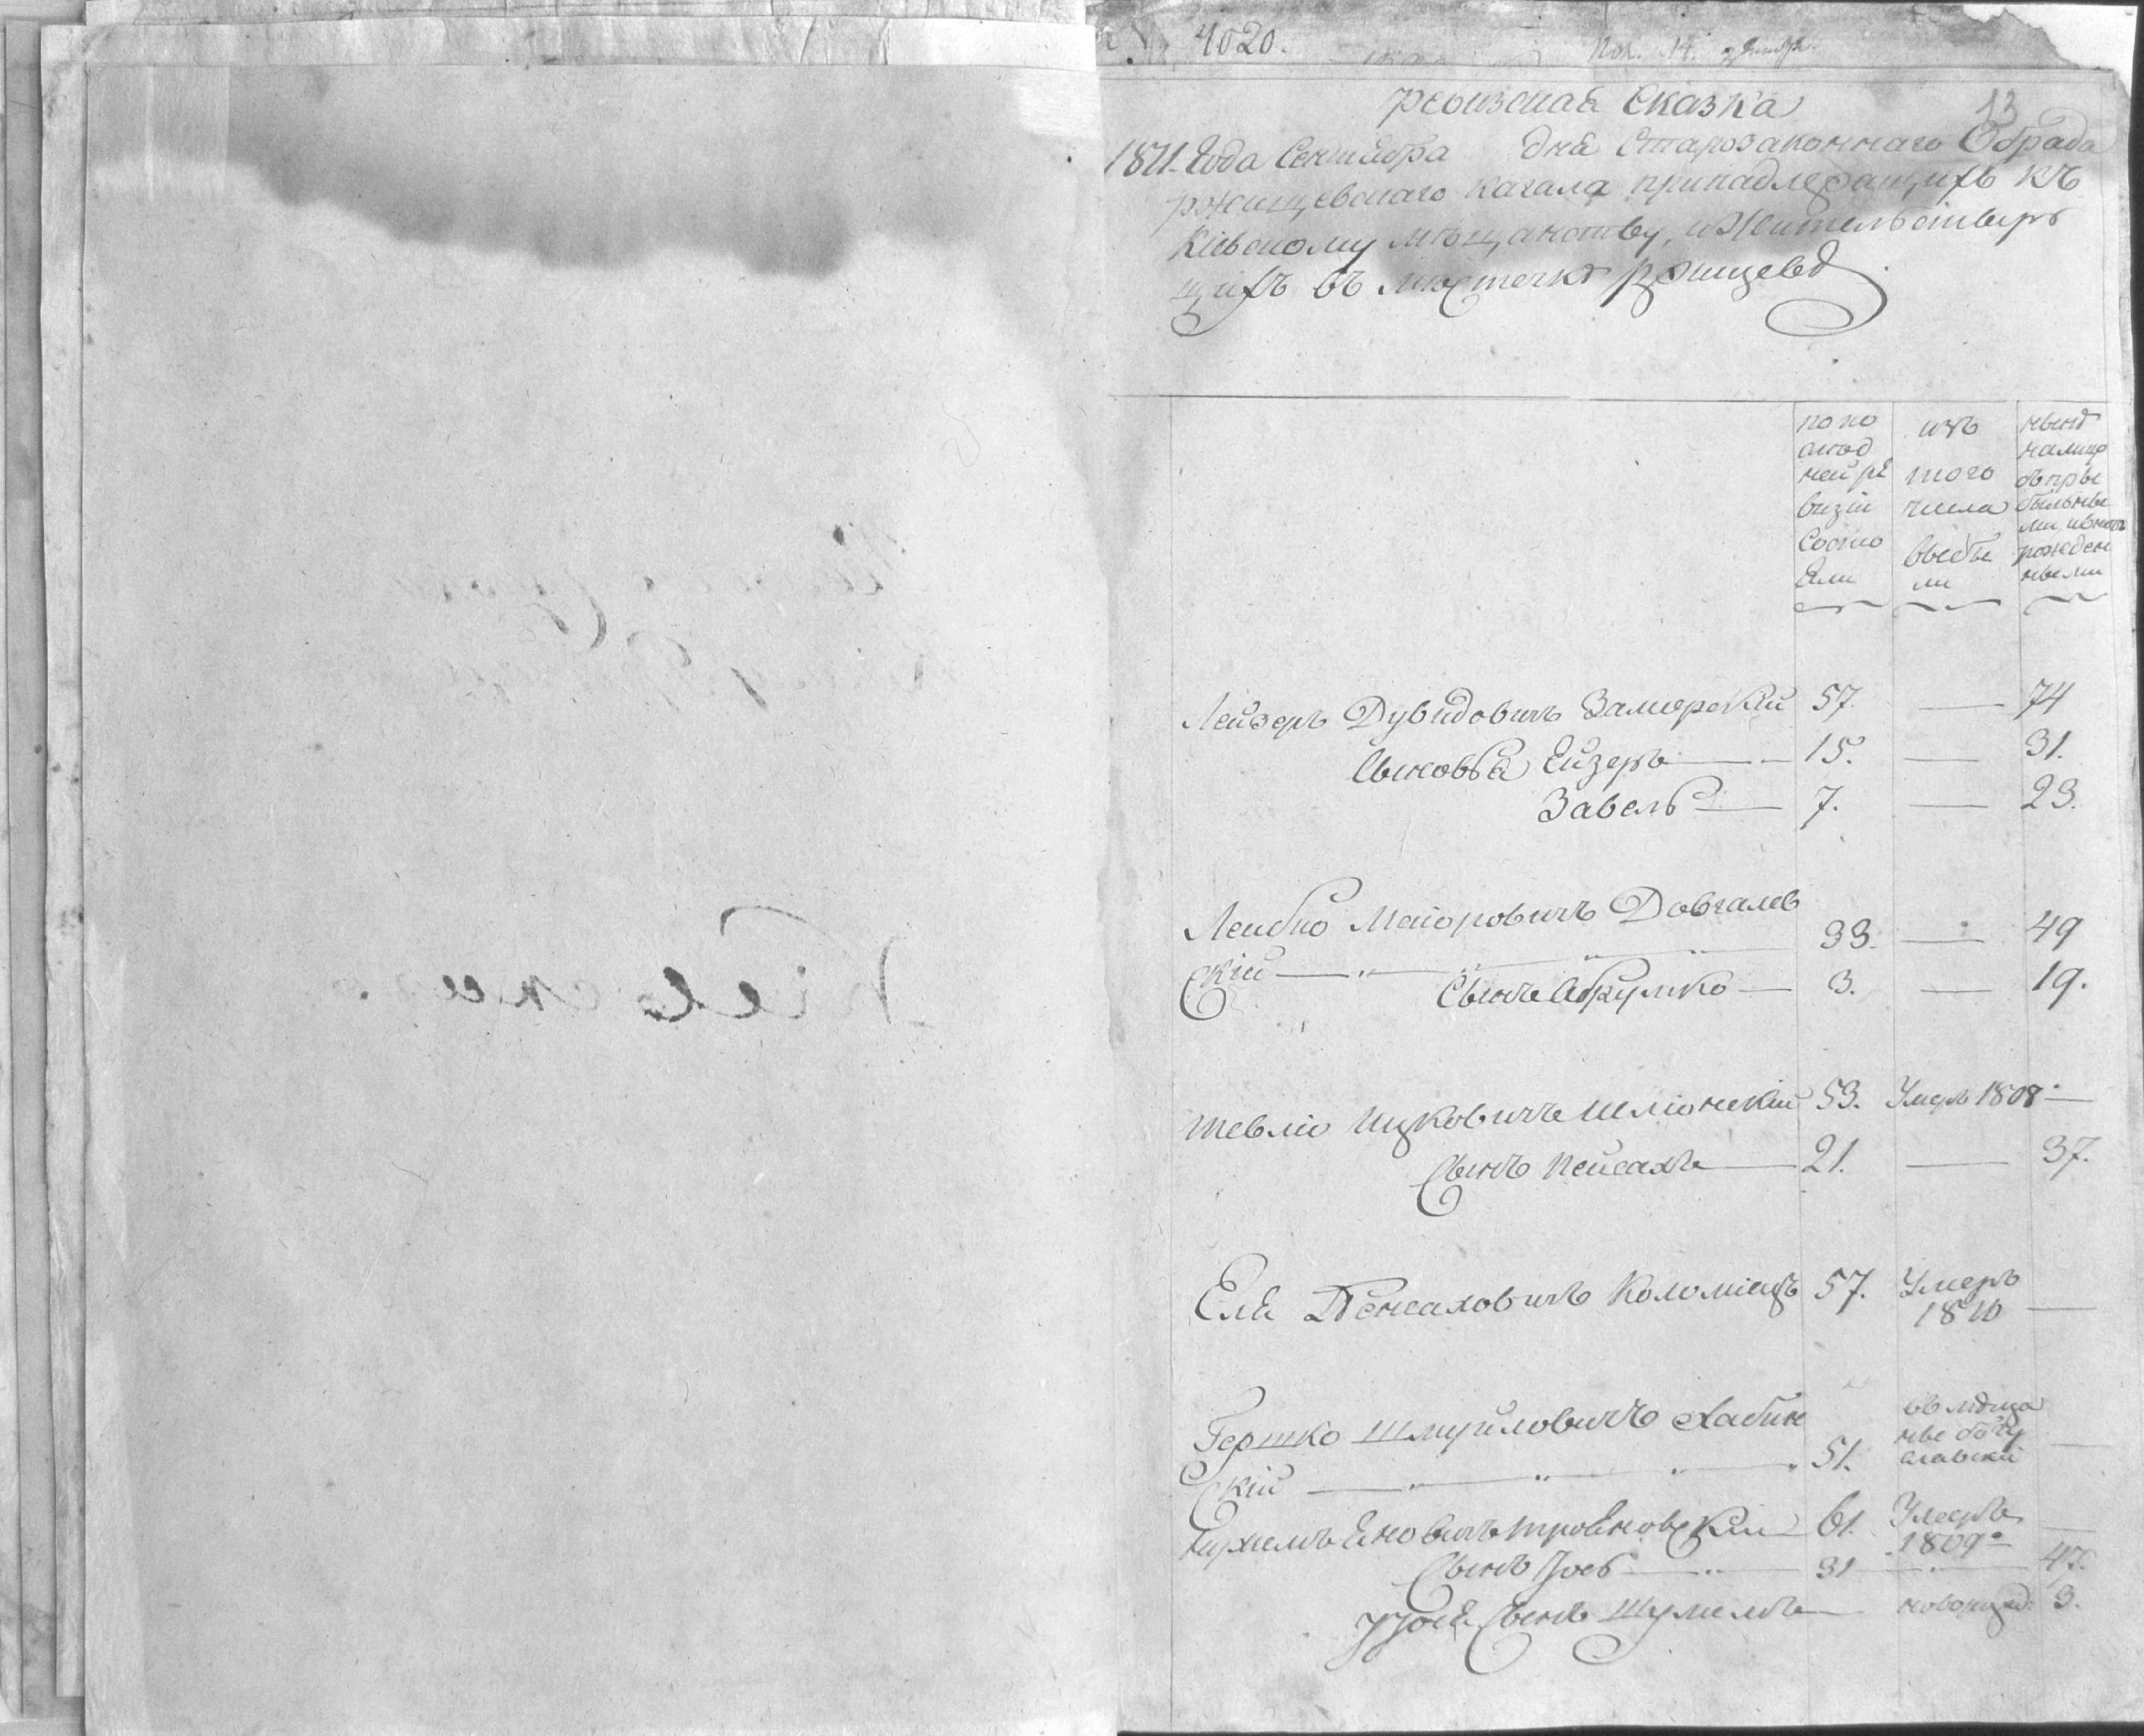 4020.
13
Ревизская Сказка
1811. Года Сентября дня Старозаконнаго Обряда
Ржищевскаго Кагала принадлежащихъ къ
Кіевскому мѣщанству, и жительствую
щихъ въ местечкѣ Ржищевѣ
по по
слѣд
ней ре
визіи
состо
яли
изъ
того
числа
выбы
ли
нынѣ
налицо
съ прибы
рожден
ными
Лейзеръ Дувидовичъ Замерскій 57. — 74
Сыновья Ейзеръ — 15. — 31.
Завель — 7. — 23.
Лейбко Маіоровичъ Довгалев
скій — 33. — 49
Сынъ Абрумко — 3. — 19.
Шевлю Ицковичъ Шліонскій 53. Умеръ 1808 —
Сынъ Пейсахъ — 21. — 37.
Еля Пейсаховичъ Коломіецъ 57. Умеръ
1810 —
Гершко Шмуйловичъ Хабин
скій — 51. —
въ мѣща
не богу
славскіи
61. Умеръ
1809 —
Сынъ Іось — 31 — 47.
У Іося Сынъ Шумилъ — новорожд: 3.
Кіевска